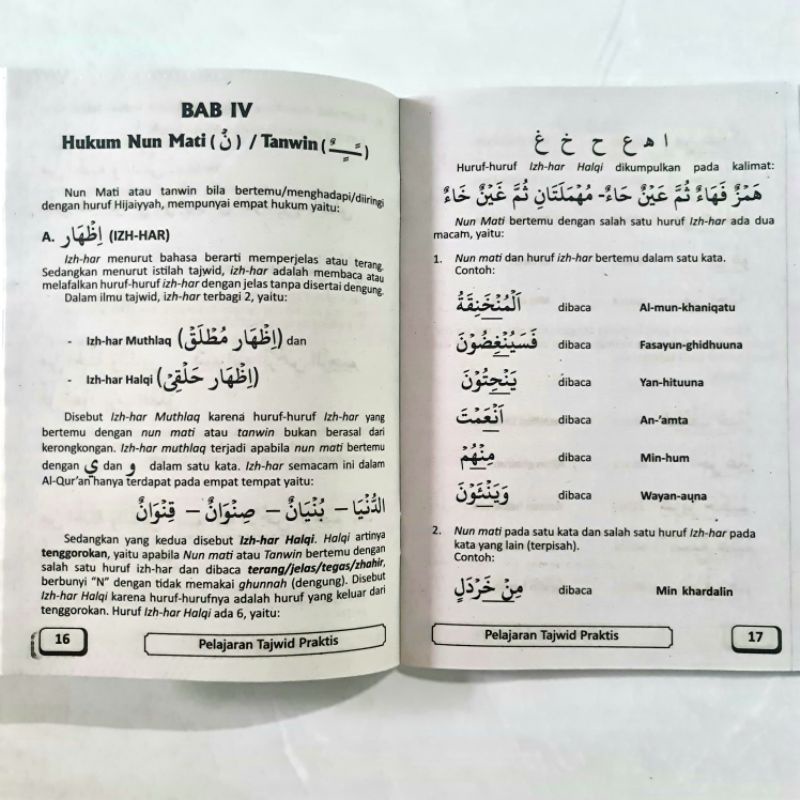 BAB IV
Hukum Nun Mati ( نْ ) / Tanwin ( ـًـٍـٌ )
Nun Mati atau tanwin bila bertemu/menghadapi/diiringi
dengan huruf Hijaiyyah, mempunyai empat hukum yaitu:
A. اِظْهَار (IZH-HAR)
Izh-har menurut bahasa berarti memperjelas atau terang.
Sedangkan menurut istilah tajwid, izh-har adalah membaca atau
melafalkan huruf-huruf izh-har dengan jelas tanpa disertai dengung.
Dalam ilmu tajwid, izh-har terbagi 2, yaitu:
- Izh-har Muthlaq (اِظْهَار مُطْلَقْ) dan
- Izh-har Halqi (اِظْهَار حَلْقِىْ)
Disebut Izh-har Muthlaq karena huruf-huruf Izh-har yang
bertemu dengan nun mati atau tanwin bukan berasal dari
kerongkongan. Izh-har muthlaq terjadi apabila nun mati bertemu
dengan ي dan و dalam satu kata. Izh-har semacam ini dalam
Al-Qur'an hanya terdapat pada empat tempat yaitu:
الدُّنْيَا – بُنْيَانٌ – صِنْوَانٌ – قِنْوَانٌ
Sedangkan yang kedua disebut Izh-har Halqi. Halqi artinya
tenggorokan, yaitu apabila Nun mati atau Tanwin bertemu dengan
salah satu huruf izh-har dan dibaca terang/jelas/tegas/zhahir,
berbunyi "N" dengan tidak memakai ghunnah (dengung). Disebut
Izh-har Halqi karena huruf-hurufnya adalah huruf yang keluar dari
tenggorokan. Huruf Izh-har Halqi ada 6, yaitu:
16 Pelajaran Tajwid Praktis
ا ه ع ح خ غ
Huruf-huruf Izh-har Halqi dikumpulkan pada kalimat:
هَمْزٌ فَهَاءٌ ثُمَّ عَيْنٌ حَاءٌ- مُهْمَلَتَانِ ثُمَّ غَيْنٌ خَاءٌ
Nun Mati bertemu dengan salah satu huruf Izh-har ada dua
macam, yaitu:
1. Nun mati dan huruf izh-har bertemu dalam satu kata.
Contoh:
اَلْمُنْخَنِقَةُ dibaca Al-mun-khaniqatu
فَسَيُنْغِضُوْنَ dibaca Fasayun-ghidhuuna
يَنْحِتُوْنَ dibaca Yan-hituuna
اَنْعَمْتَ dibaca An-'amta
مِنْهُمْ dibaca Min-hum
وَيَنْئَوْنَ dibaca Wayan-auna
2. Nun mati pada satu kata dan salah satu huruf Izh-har pada
kata yang lain (terpisah).
Contoh:
مِنْ خَرْدَلٍ dibaca Min khardalin
Pelajaran Tajwid Praktis 17